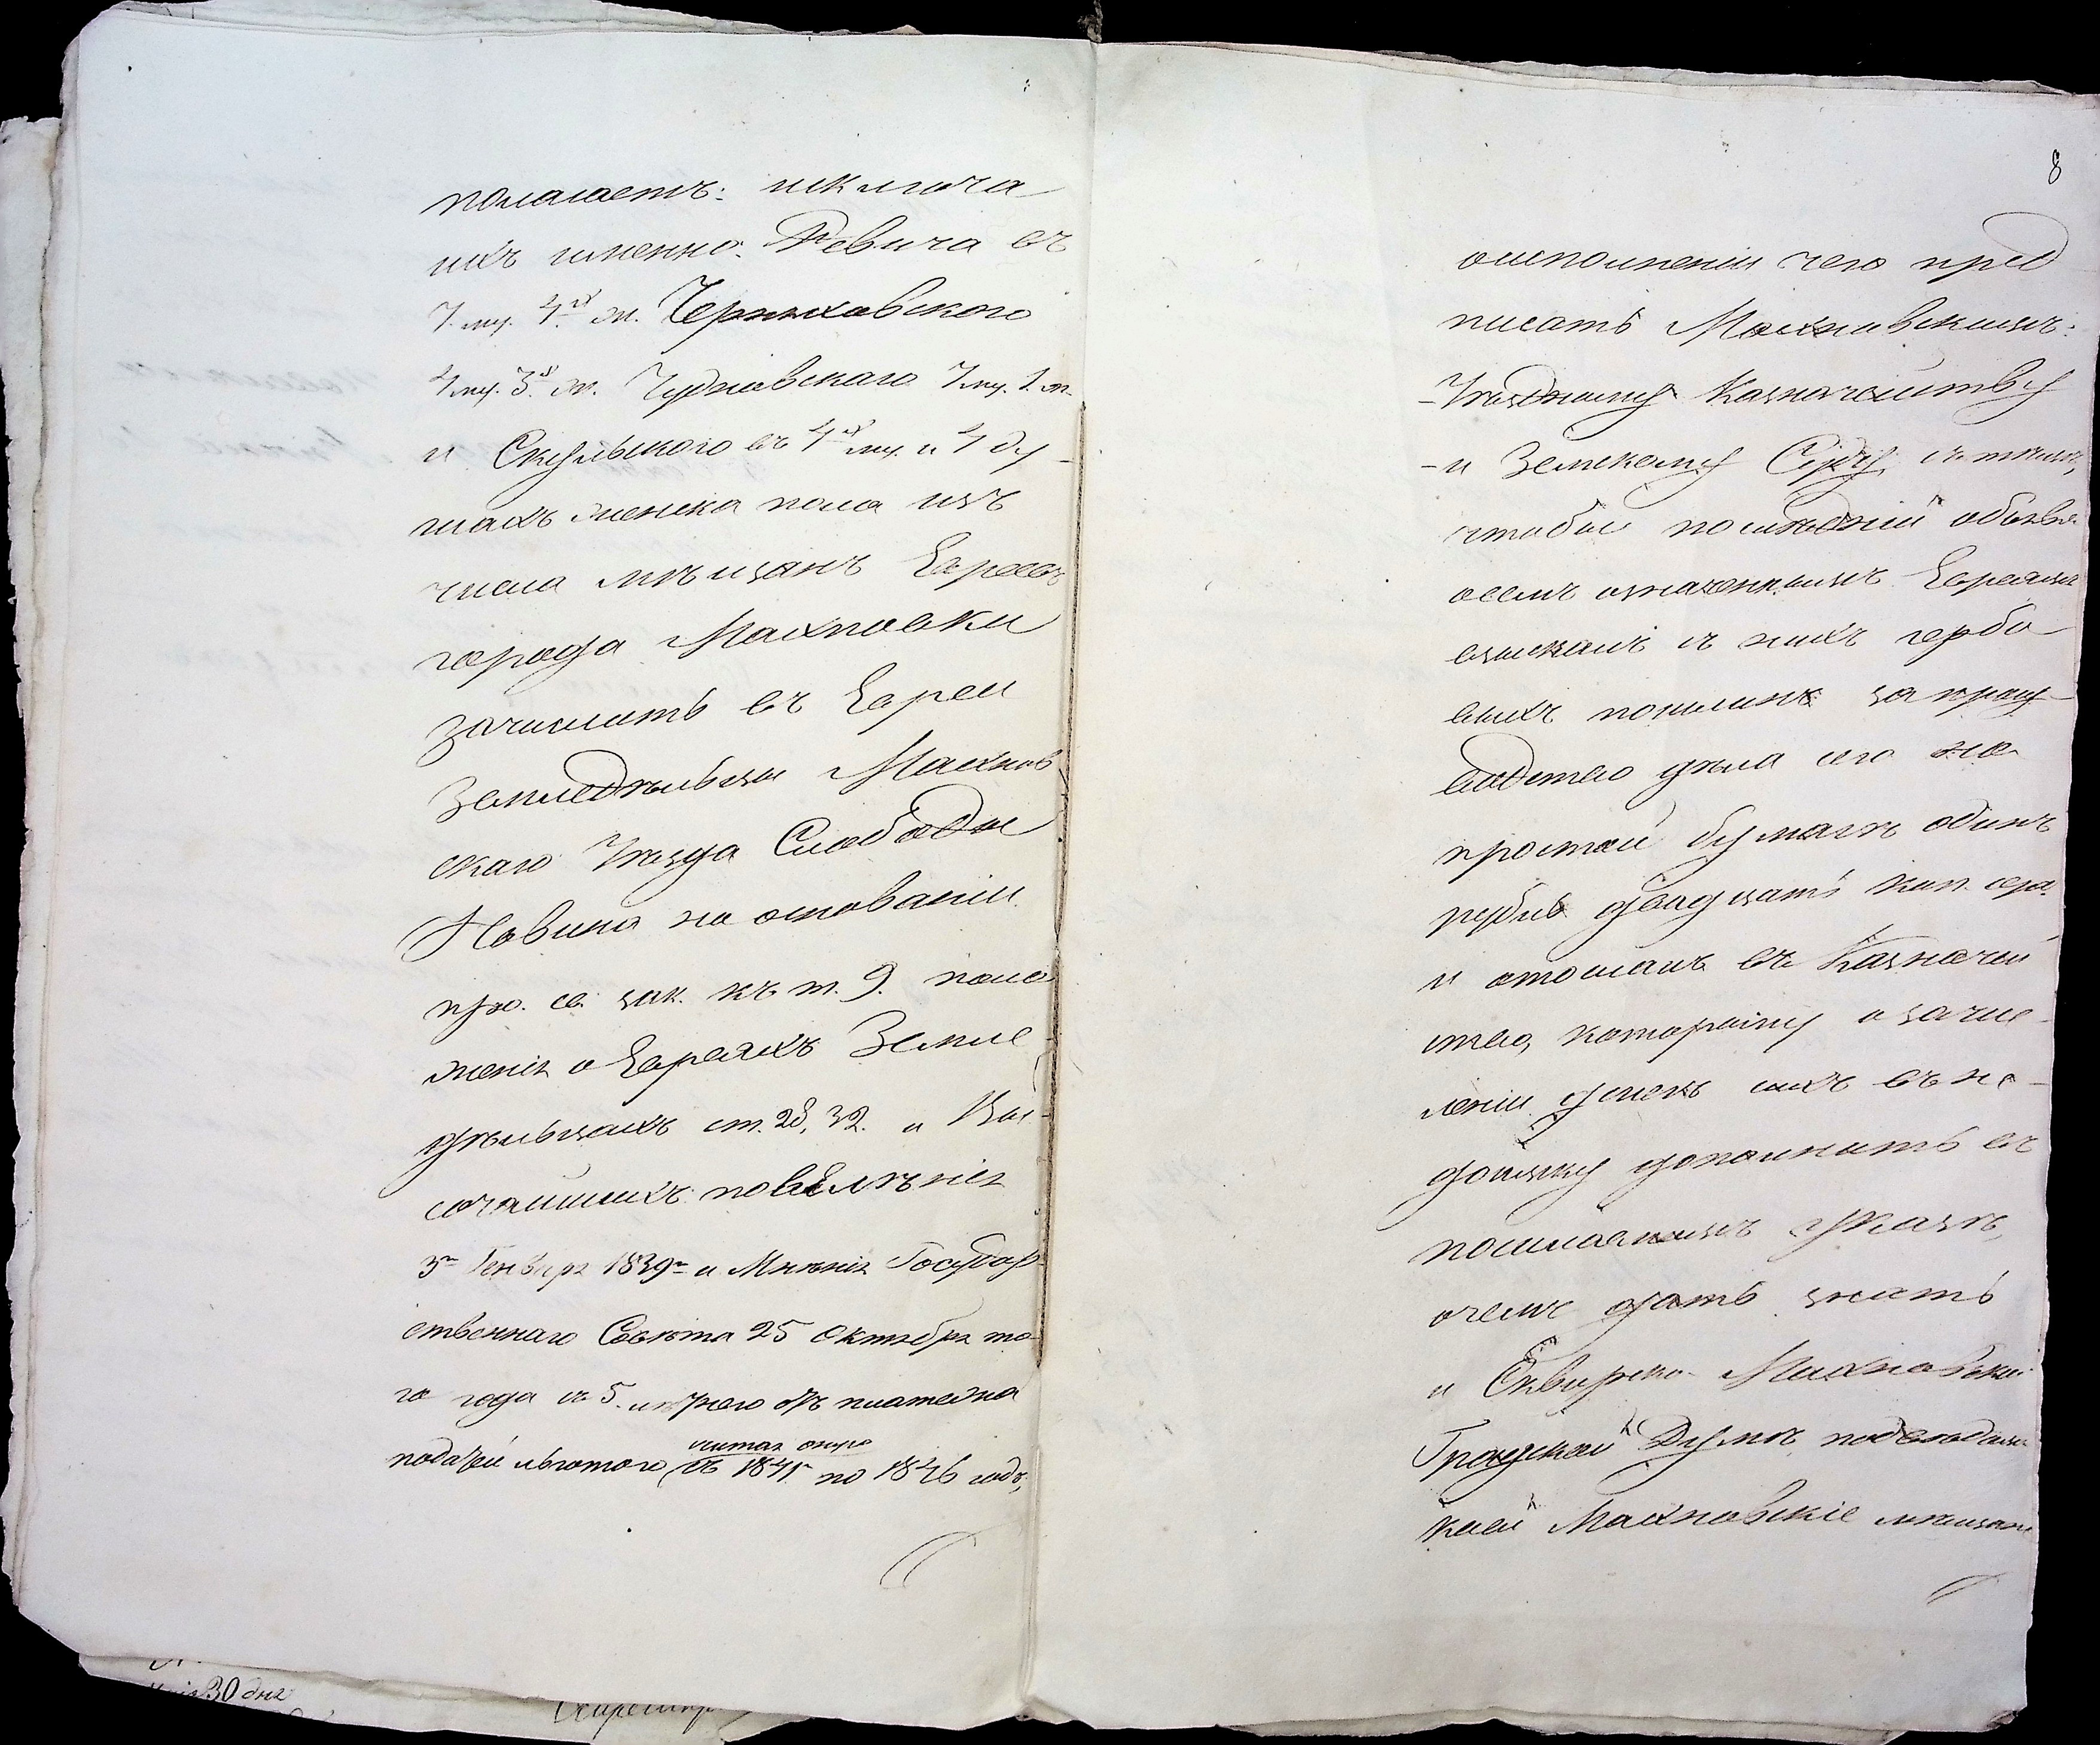 полагаетъ: исключа
ихъ именно: Ревича въ
7. му. 4.х ж. Черняховского
4 му. 3.х ж. Чудновскаго 7 му. 1. ж.
и Скульского въ 4х му. и 4 ду-
шахъ женска пола изъ
числа мѣщанъ Евреевъ
города Махновки
зачислить въ Евреи
Земледѣльцы Махнов
скаго Уѣзда Слободы
на основаніи
прод. св. зак. къ т. 9. поло
женія о Евреяхъ Земле
дѣльцахъ ст. 28, 32. и Вы-
сочайшихъ повелѣнія
3го Генваря 1839го и Мнѣнія Государ-
ственнаго Совѣта 25 Октября то-
го года съ 5. лѣтнею отъ платежа
податей льготою (считая оную
съ 1841го по 1846 годъ,
8
оисполненіи чего пред
писать Махновскимъ:
-Уѣздному Казначейству
-и Земскому Суду, съ тѣмъ,
чтобы послѣдній объявя
осемъ означеннымъ Евреямъ
взыскалъ съ нихъ гербо-
выхъ пошлинъ за произ-
водство дѣла сего на
простой бумагѣ одинъ
рубль двадцать коп. сер.
и отослалъ въ Казначей
ство, которому о зачис-
леніи денегъ сихъ въ не-
доимку дополнить въ
посылаемомъ указѣ,
очемъ дать знать
и Сквиро- Махновской
Градской Думѣ подвѣдомс
коей Махновскіе мѣщане
30 дня
Секретарь